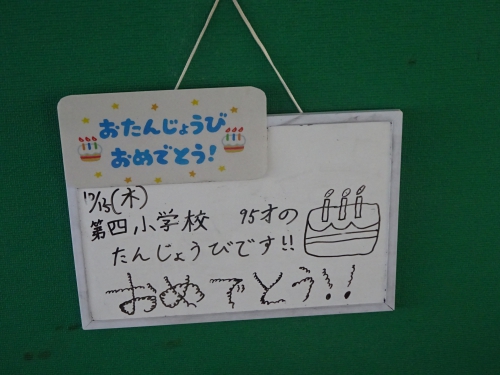 おたんじょうび
おめでとう!
12/15(木)
第四小学校 95才の
たんじょうびです!!
おめでとう!!